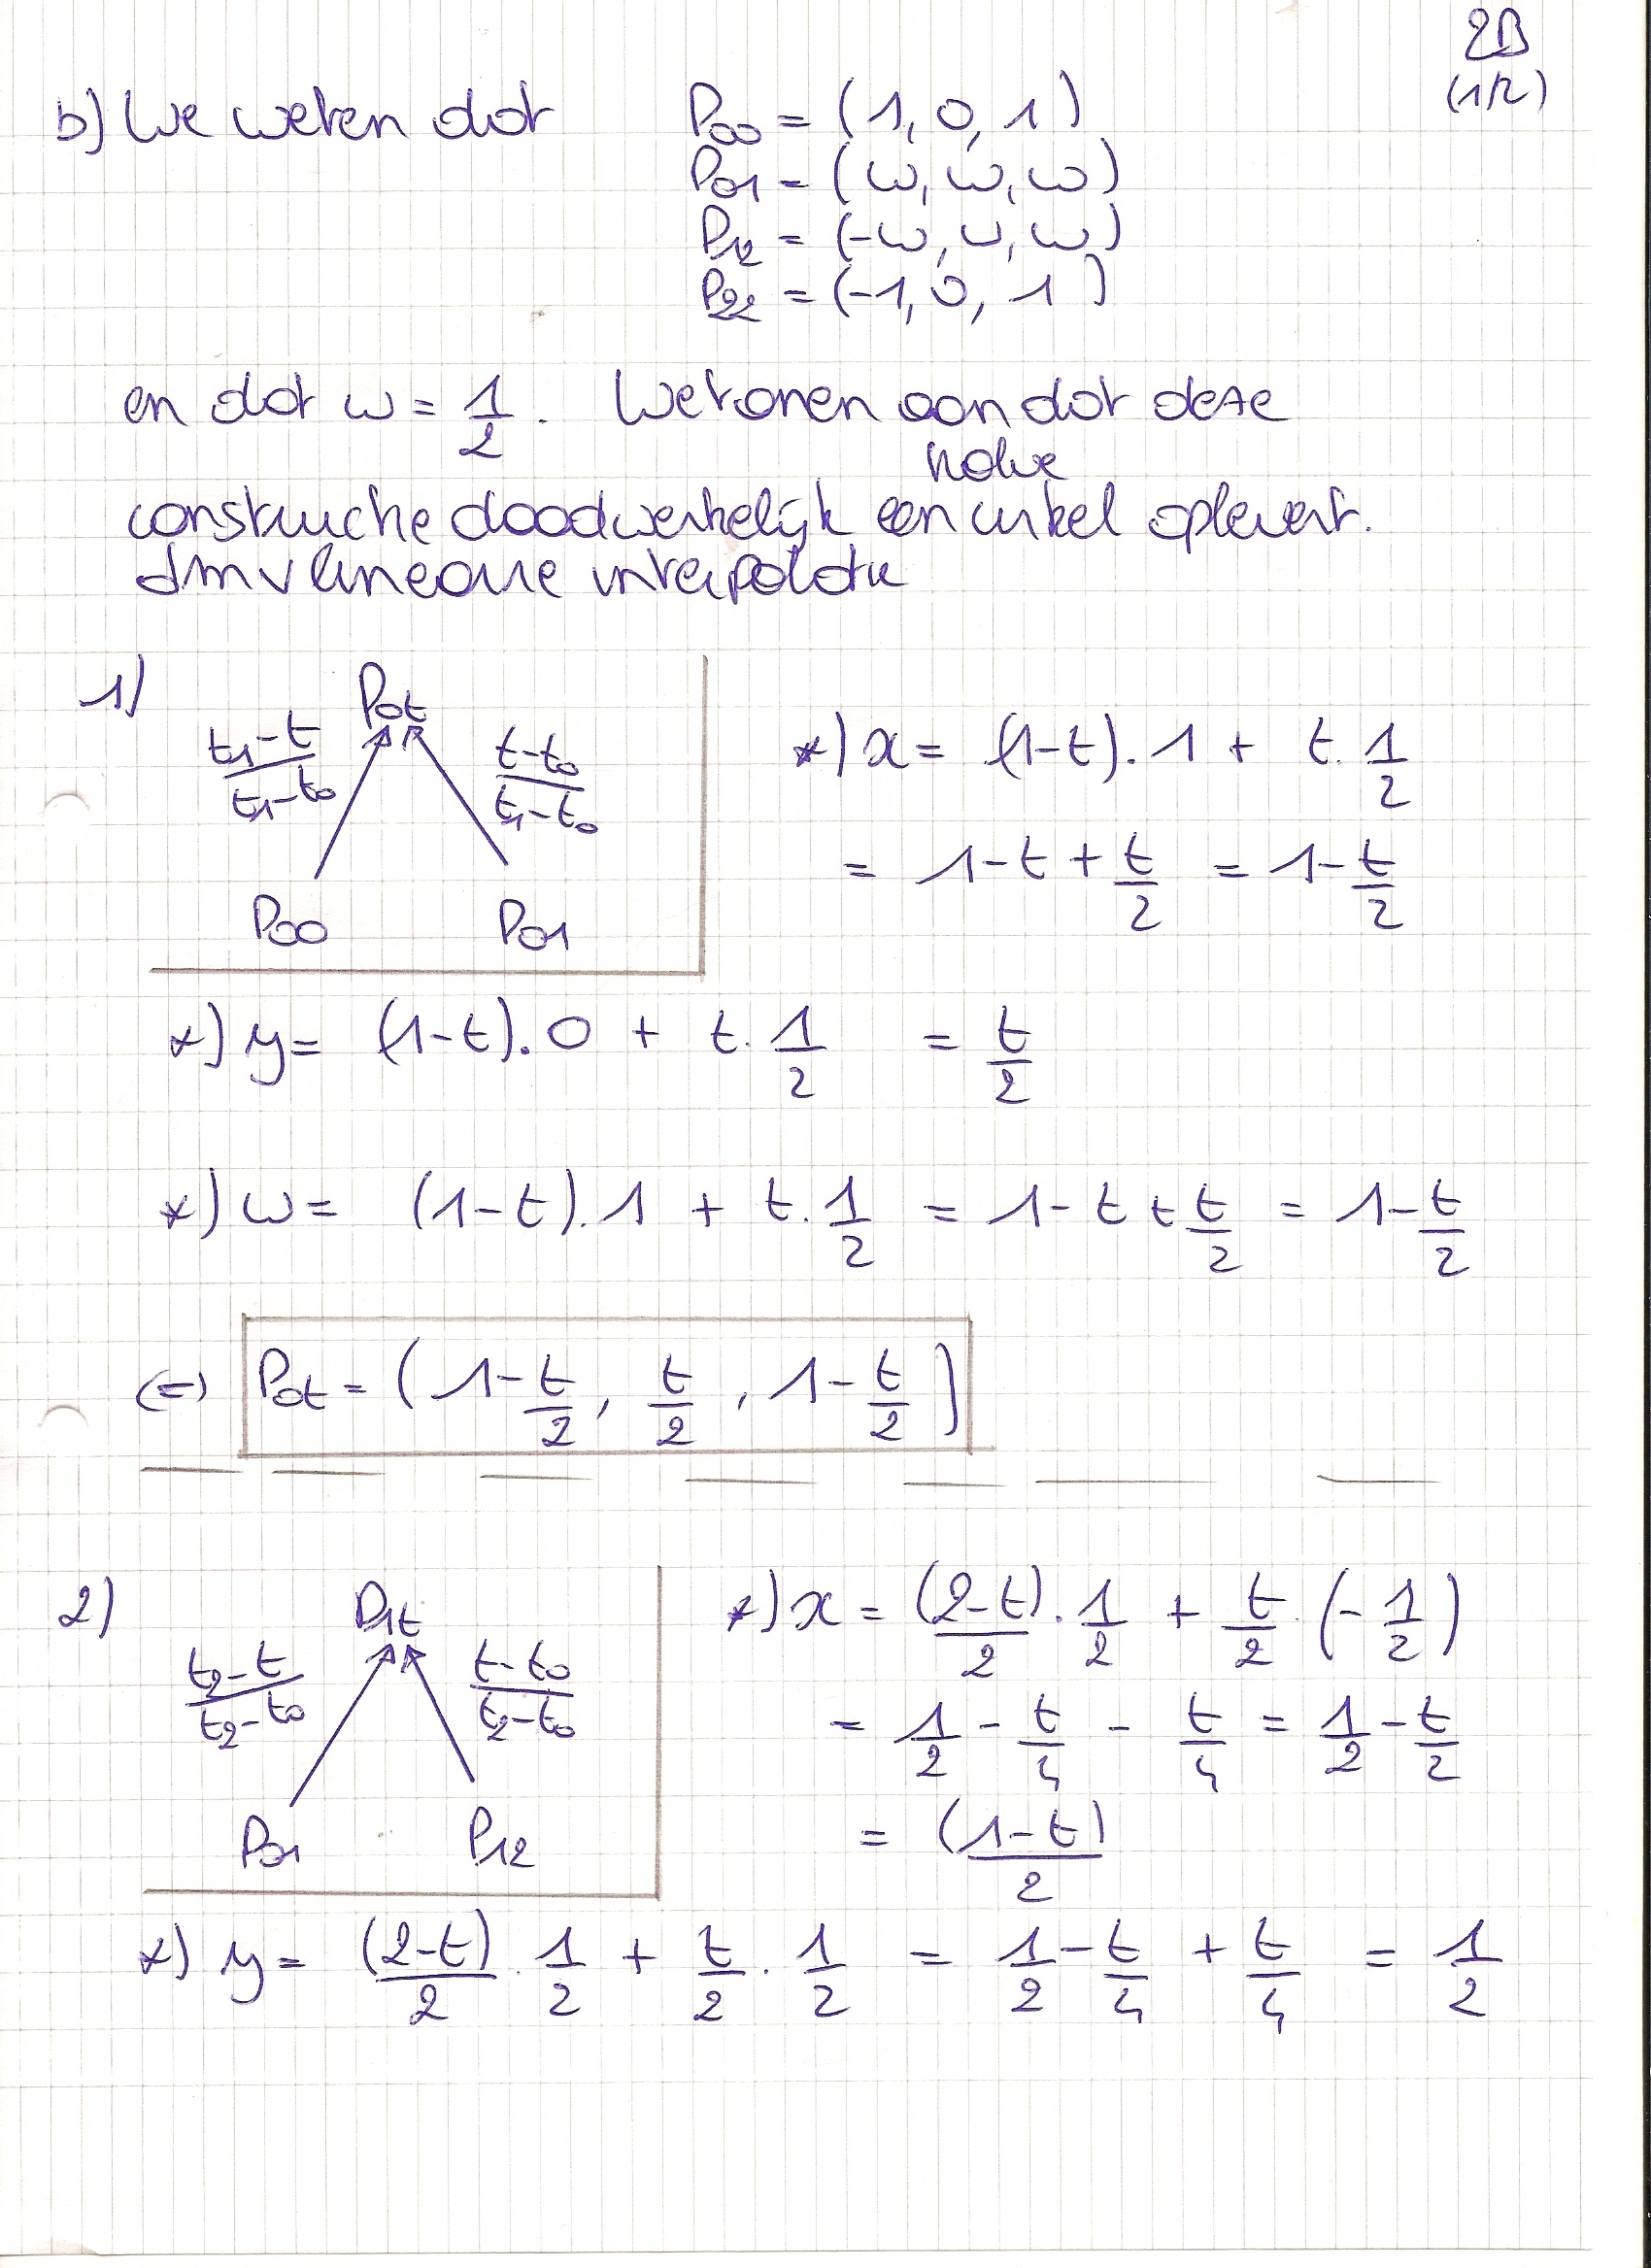 2B
(1/2)
b) We weten dat P00 = (1, 0, 1)
P01 = (w, w, w)
P12 = (-w, w, w)
P22 = (-1, 0, 1)
en dat w = 1/2. We tonen aan dat deze
halve
constructie daadwerkelijk een cirkel oplevert.
dmv lineaire interpolatie
1)
P0t
(t1-t)/(t1-t0) (t-t0)/(t1-t0)
P00 P01
*) x = (1-t).1 + t.1/2
= 1-t + t/2 = 1-t/2
*) y = (1-t).0 + t.1/2 = t/2
*) w = (1-t).1 + t.1/2 = 1-t+t/2 = 1-t/2
(=) P0t = (1-t/2, t/2, 1-t/2)
2)
P1t
(t2-t)/(t2-t0) (t-t0)/(t2-t0)
P01 P12
*) x = (2-t)/2.1/2 + t/2.(-1/2)
= 1/2 - t/4 - t/4 = 1/2 - t/2
= (1-t)/2
*) y = (2-t)/2.1/2 + t/2.1/2 = 1/2 - t/4 + t/4 = 1/2